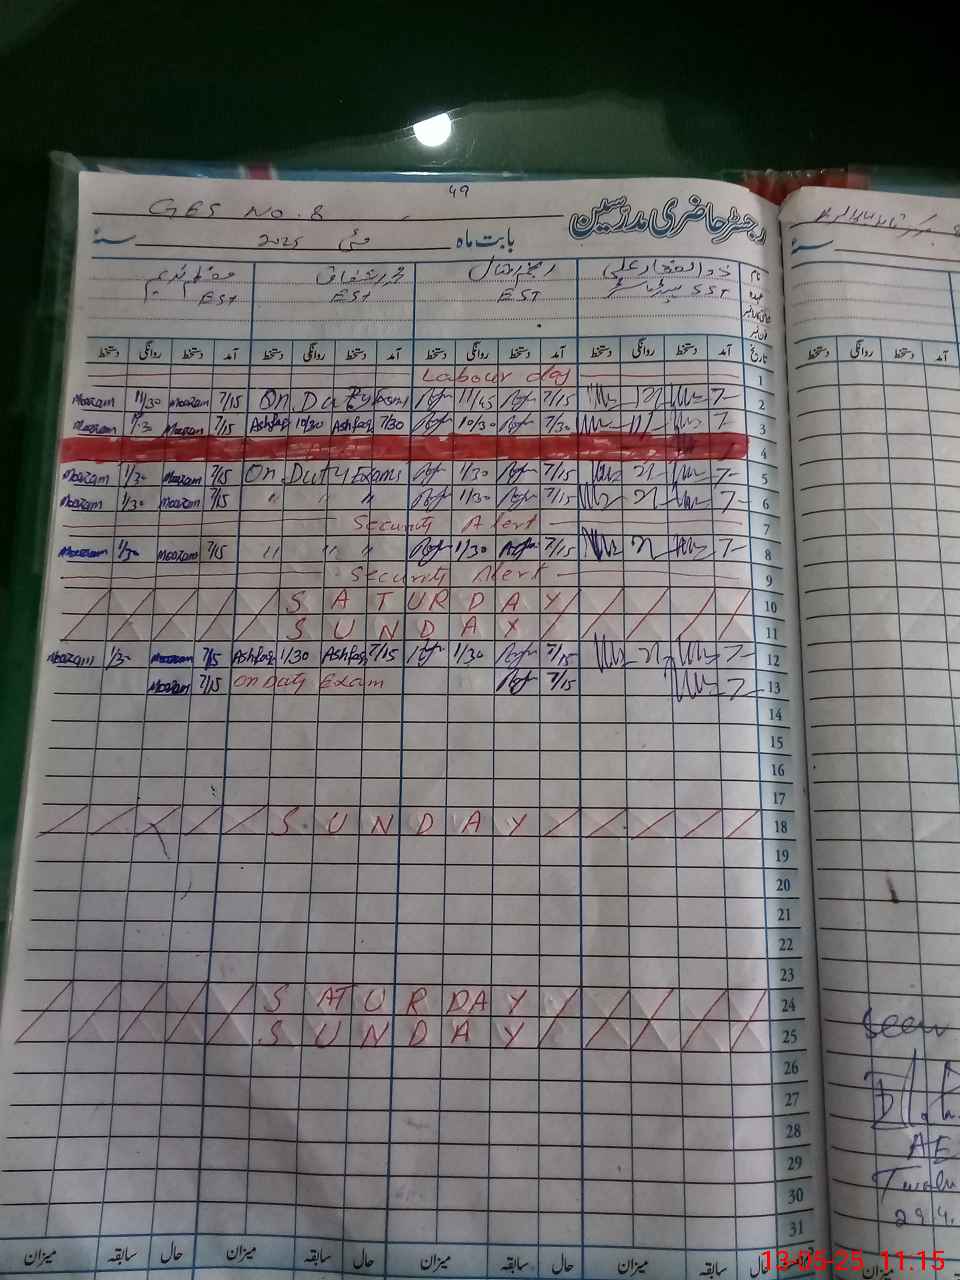 49
GES No. 8
رجسٹر حاضری مدرسین
بابت ماہ مئی 2025 سنہ
نام ذوالفقار علی محمد اشفاق
عہدہ SST EST EST EST
تاریخ آمد دستخط روانگی دستخط آمد دستخط روانگی دستخط آمد دستخط روانگی دستخط آمد دستخط روانگی دستخط
Labour day 1
Moazam 11/30 Moazam 7/15 On Duty Exams 11/45 7/15 2
Moazam Moazam 7/15 Ashfaq 10/30 Ashfaq 7/30 10/30 7/30 3
4
Moazam 1/30 Moazam 7/15 On Duty Exams 1/30 7/15 5
Moazam 1/30 Moazam 7/15 " " " 1/30 7/15 6
Security Alert 7
Moazam 1/30 Moazam 7/15 " " " 1/30 7/15 8
Security Alert 9
SATURDAY 10
SUNDAY 11
Moazam 1/30 Moazam 7/15 Ashfaq 1/30 Ashfaq 7/15 1/30 7/15 12
Moazam 7/15 On Duty Exam 7/15 13
14
15
16
17
SUNDAY 18
19
20
21
22
23
SATURDAY 24
SUNDAY 25
26
27
28
29
30
31
حال سابقہ میزان حال سابقہ میزان حال سابقہ میزان حال سابقہ میزان
سنہ
آمد دستخط روانگی دستخط
Seen
29.4.
میزان
13-05-25 11:15